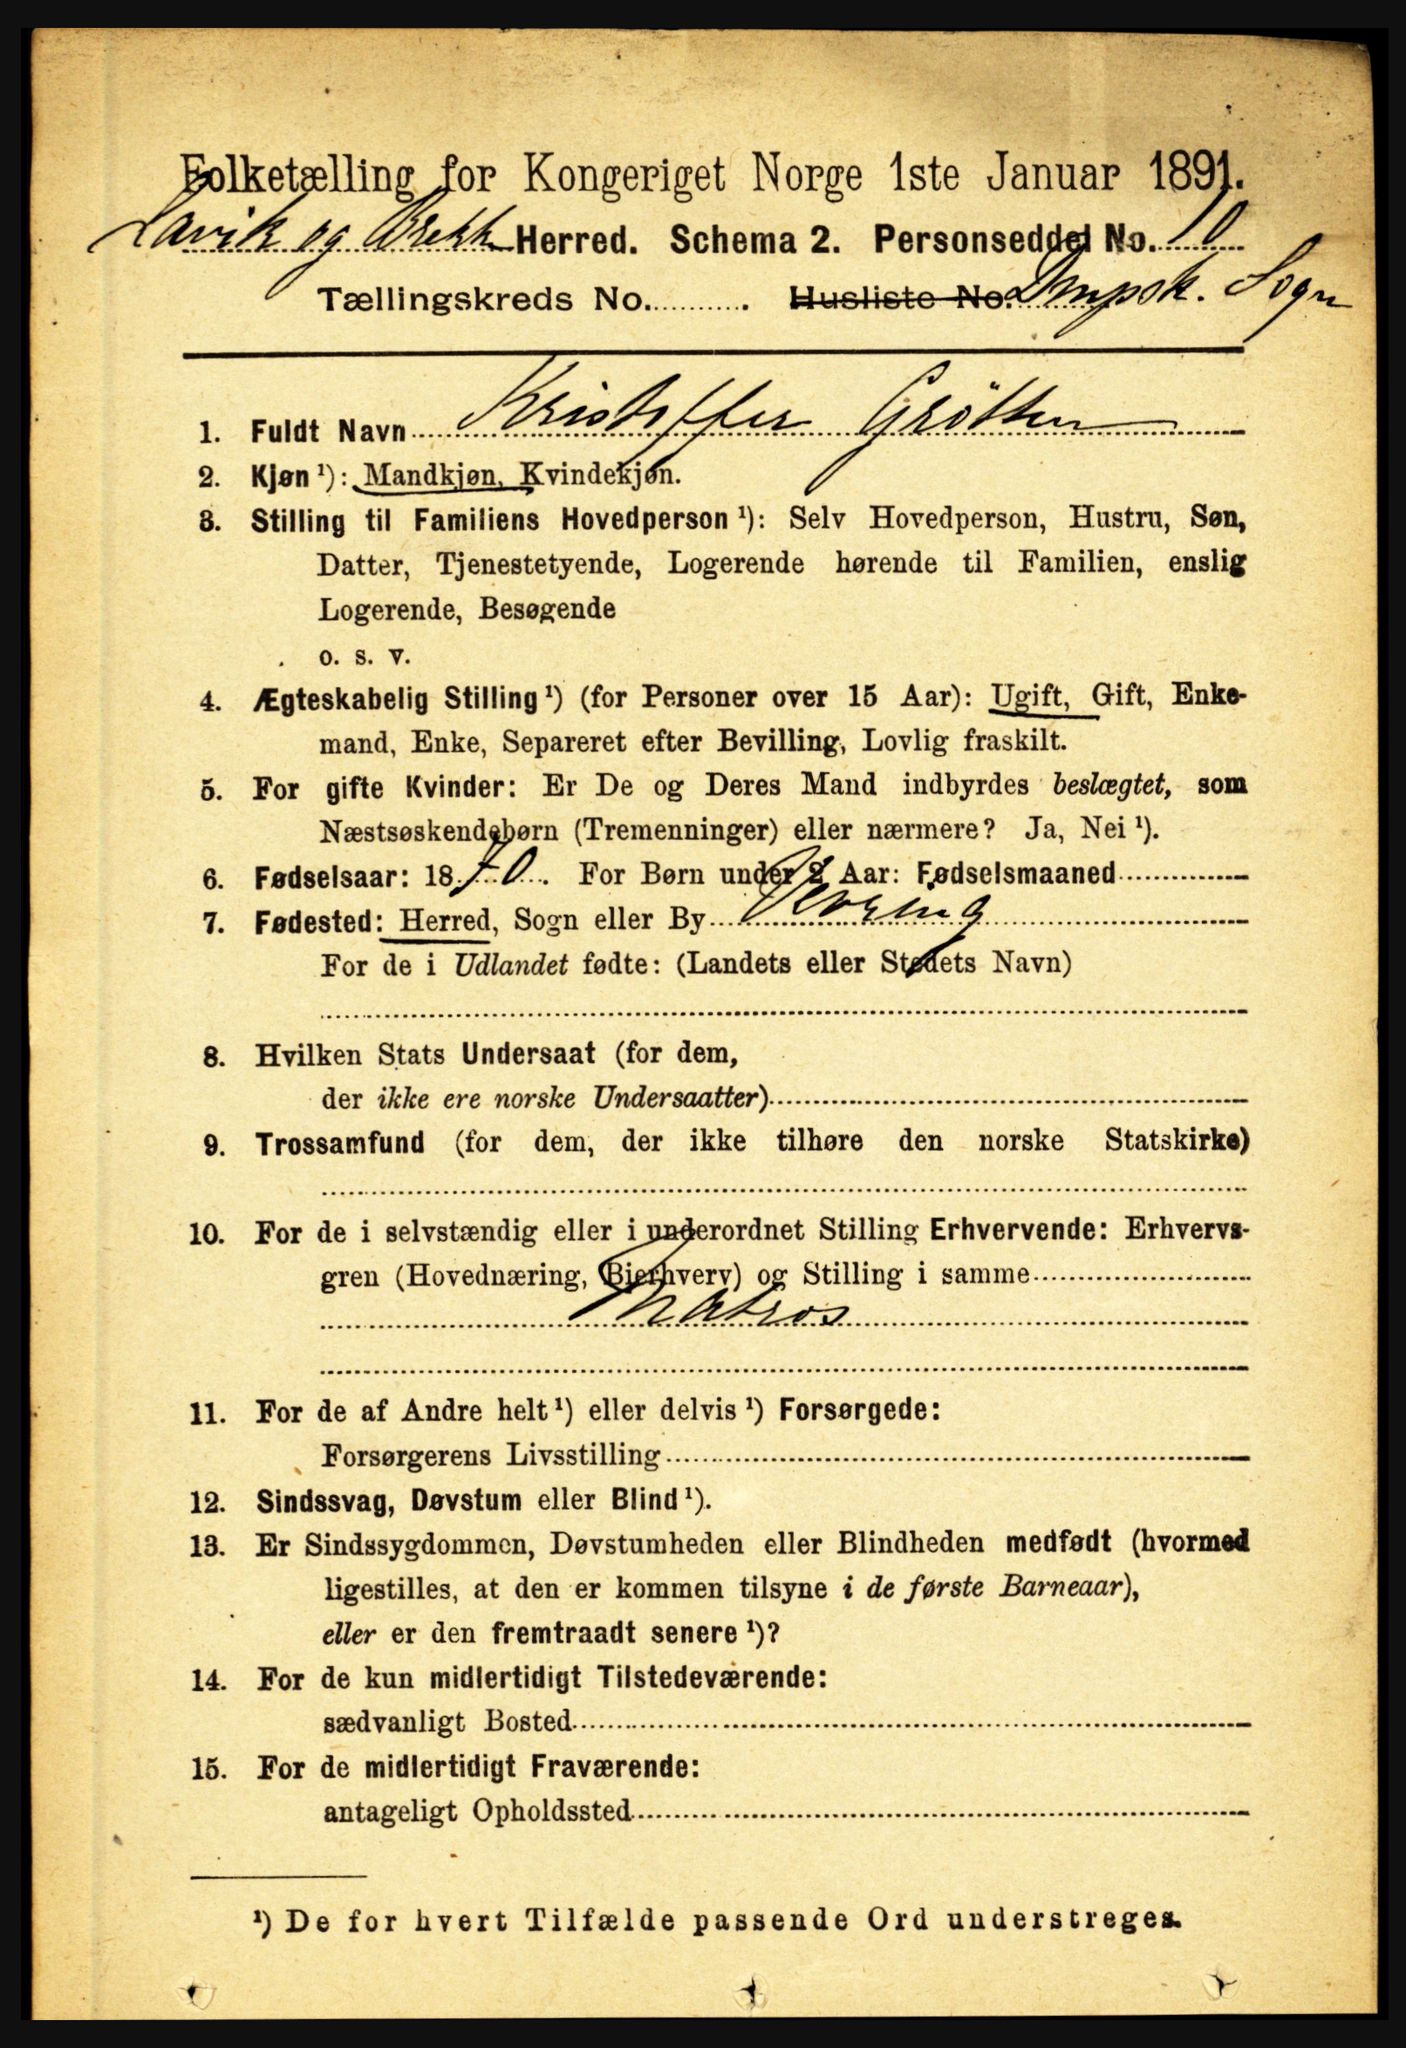 Folketælling for Kongeriget Norge 1ste Januar 1891.
Lavik og Brekke Herred. Schema 2. Personseddel No. 10
Tællingskreds No. . Husliste No. Dmpsk. Sogn
1. Fuldt Navn Kristoffer Grötten
2. Kjøn ¹): Mandkjøn, Kvindekjøn.
3. Stilling til Familiens Hovedperson ¹): Selv Hovedperson, Hustru, Søn,
Datter, Tjenestetyende, Logerende hørende til Familien, enslig
Logerende, Besøgende
o. s. v.
4. Ægteskabelig Stilling ¹) (for Personer over 15 Aar): Ugift, Gift, Enke-
mand, Enke, Separeret efter Bevilling, Lovlig fraskilt.
5. For gifte Kvinder: Er De og Deres Mand indbyrdes beslægtet, som
Næstsøskendebørn (Tremenninger) eller nærmere? Ja, Nei ¹).
6. Fødselsaar: 1870. For Børn under 2 Aar: Fødselsmaaned
7. Fødested: Herred, Sogn eller By
For de i Udlandet fødte: (Landets eller Stedets Navn)
8. Hvilken Stats Undersaat (for dem,
der ikke ere norske Undersaatter)
9. Trossamfund (for dem, der ikke tilhøre den norske Statskirke)
10. For de i selvstændig eller i underordnet Stilling Erhvervende: Erhvervs-
gren (Hovednæring, Bierhverv) og Stilling i samme
Matros
11. For de af Andre helt ¹) eller delvis ¹) Forsørgede:
Forsørgerens Livsstilling
12. Sindssvag, Døvstum eller Blind ¹).
13. Er Sindssygdommen, Døvstumheden eller Blindheden medfødt (hvormed
ligestilles, at den er kommen tilsyne i de første Barneaar),
eller er den fremtraadt senere ¹)?
14. For de kun midlertidigt Tilstedeværende:
sædvanligt Bosted
15. For de midlertidigt Fraværende:
antageligt Opholdssted
¹) De for hvert Tilfælde passende Ord understreges.